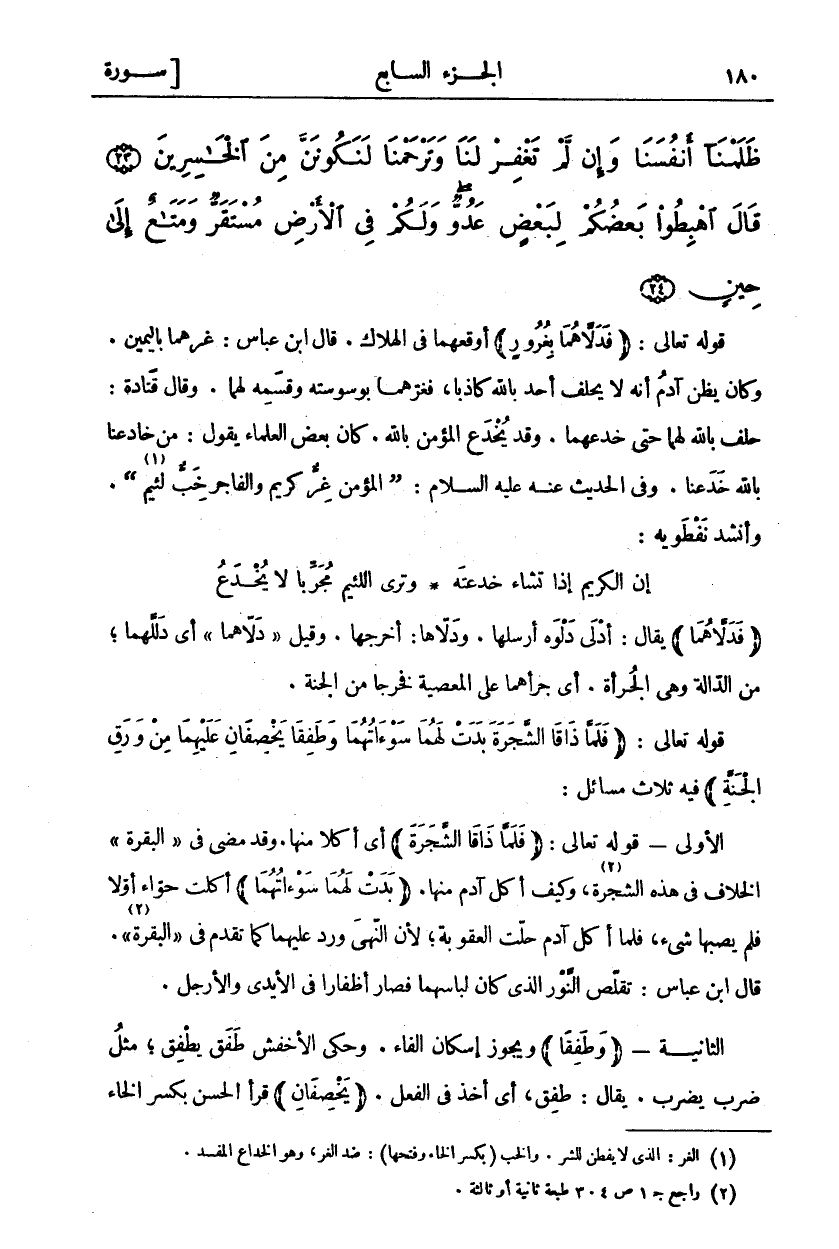 ١٨٠ الجـزء السابع [ســورة
ظَلَمْنَآ أَنفُسَنَا وَإِن لَّمْ تَغْفِرْ لَنَا وَتَرْحَمْنَا لَنَكُونَنَّ مِنَ ٱلْخَـٰسِرِينَ ﴿٢٣﴾
قَالَ ٱهْبِطُوا۟ بَعْضُكُمْ لِبَعْضٍ عَدُوٌّ ۖ وَلَكُمْ فِى ٱلْأَرْضِ مُسْتَقَرٌّ وَمَتَـٰعٌ إِلَىٰ
حِينٍ ﴿٢٤﴾
قوله تعالى : ﴿ فَدَلَّاهُمَا بِغُرُورٍ ﴾ أوقعهما فى الهلاك . قال ابن عباس : غرهما باليمين .
وكان يظن آدمُ أنه لا يحلف أحد بالله كاذبا، فغرهمـا بوسوسته وقَسَمِه لهما . وقال قتادة :
حلف بالله لهما حتى خدعهما . وقد يُخْدَع المؤمن بالله . كان بعض العلماء يقول : من خادعنا
بالله خَدَعنا . وفى الحديث عنـه عليه السـلام : ” المؤمن غِرٌّ كريم والفاجر خَبٌّ لئيم (١) “ .
وأنشد نَفْطَويه :
إن الكريم إذا تشاء خدعتَه * وترى اللئيم مُجَرِّبا لا يُخْـدَعُ
﴿ فَدَلَّاهُمَا ﴾ يقال : أدْلَى دَلْوَه أرسلها . ودَلّاها: أخرجها . وقيل « دَلّاهما » أى دَلَّلهما ؛
من الدّالة وهى الجُرأة . أى جرأهما على المعصية فخرجا من الجنة .
قوله تعالى : ﴿ فَلَمَّا ذَاقَا الشَّجَرَةَ بَدَتْ لَهُمَا سَوْءَاتُهُمَا وَطَفِقَا يَخْصِفَانِ عَلَيْهِمَا مِنْ وَرَقِ
الْجَنَّةِ ﴾ فيه ثلاث مسائل :
الأولى — قوله تعالى : ﴿ فَلَمَّا ذَاقَا الشَّجَرَةَ ﴾ أى أكلا منها. وقد مضى فى « البقرة »
الخلاف فى هذه الشجرة (٢)، وكيف أكل آدم منها. ﴿ بَدَتْ لَهُمَا سَوْءَاتُهُمَا ﴾ أكلت حوّاء أوّلا
فلم يصبها شىء، فلما أكل آدم حلّت العقوبة؛ لأن النَّهىَ ورد عليهما كما تقدم فى «البقرة» (٢).
قال ابن عباس : تقلّص النُّور الذى كان لباسهما فصار أظفارا فى الأيدى والأرجل .
الثانيـــة — ﴿ وَطَفِقَا ﴾ ويجوز إسكان الفاء . وحكى الأخفش طَفَق يطْفِق ؛ مثلُ
ضرب يضرب . يقال : طفِق، أى أخذ فى الفعل . ﴿ يَخْصِفَانِ ﴾ قرأ الحسن بكسر الخاء
(١) الغر : الذى لا يفطن للشر . والخب (بكسر الخاء وفتحها) : ضد الغر، وهو الخداع المفسد .
(٢) راجع جـ ١ ص ٣٠٤ طبعة ثانية أو ثالثة .